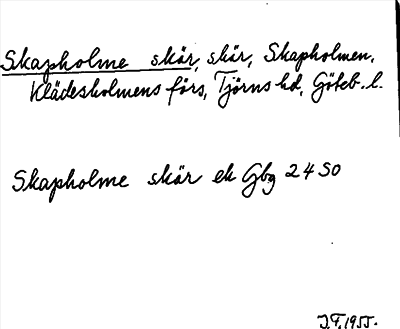 Skapholme skär, skär, Skapholmen,
Klädesholmens förs, Tjörns hd, Göteb. l.
Skapholme skär ek Gbg 24 SO
J.F. 1955.